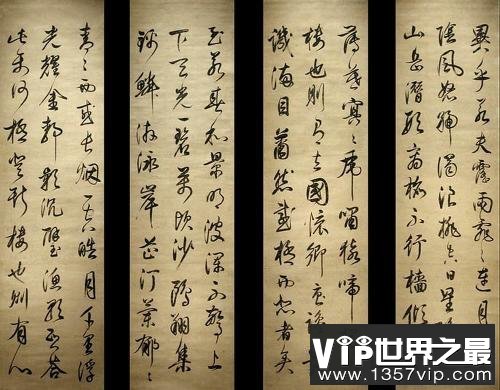 異乎若夫霪雨霏々連月
陰風怒號濁浪排空日星隱
山岳潛形商旅不行檣傾
薄暮冥々虎嘯猿啼
樓也則有去國懷鄉憂讒
譏滿目蕭然感極而悲者矣
至若春和景明波瀾不驚上
下天光一碧萬頃沙鷗翔集
錦鱗游泳岸芷汀蘭郁々
青々而或長烟一空皓月千里浮
光耀金靜影沉璧漁歌互答
此樂何極登斯樓也則有心
VIP世界之最
www.1357vip.com